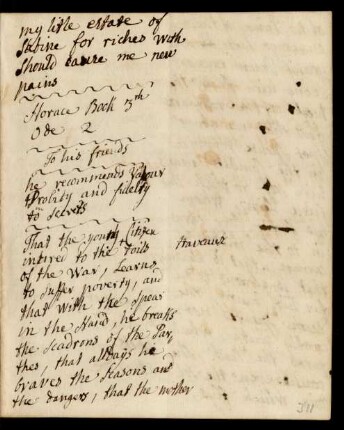 my litle estate of
Sabine for riches with
should cause me new
pains
Horace Book 3th
Ode 2
To his friends
he recommends Valour
Probity and fidelity
to secrets
That the young Citizen
intired to the Toils
travaux
of the War, Learns
to suffer poverty, and
that with the Spear
in the Hand, he breaks
the scadrons of the Par,
thes, that allways he
braves the Seasons and
the dangers, that the mother
511